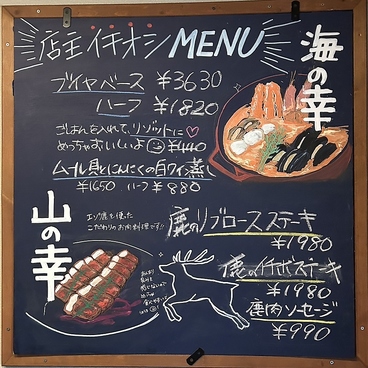 店主イチオシMENU
海の幸
ブイヤベース ¥3630
ハーフ ¥1820
ごはんを入れて、リゾットに♡
めっちゃおいしいよ ¥440
ムール貝とにんにくの白ワイン蒸し
¥1650 ハーフ¥880
山の幸
エゾ鹿を使った
こだわりのお肉料理です!!
鹿のリブロースステーキ
¥1980
鹿のイチボステーキ
¥1980
鹿肉ソーセージ
¥990